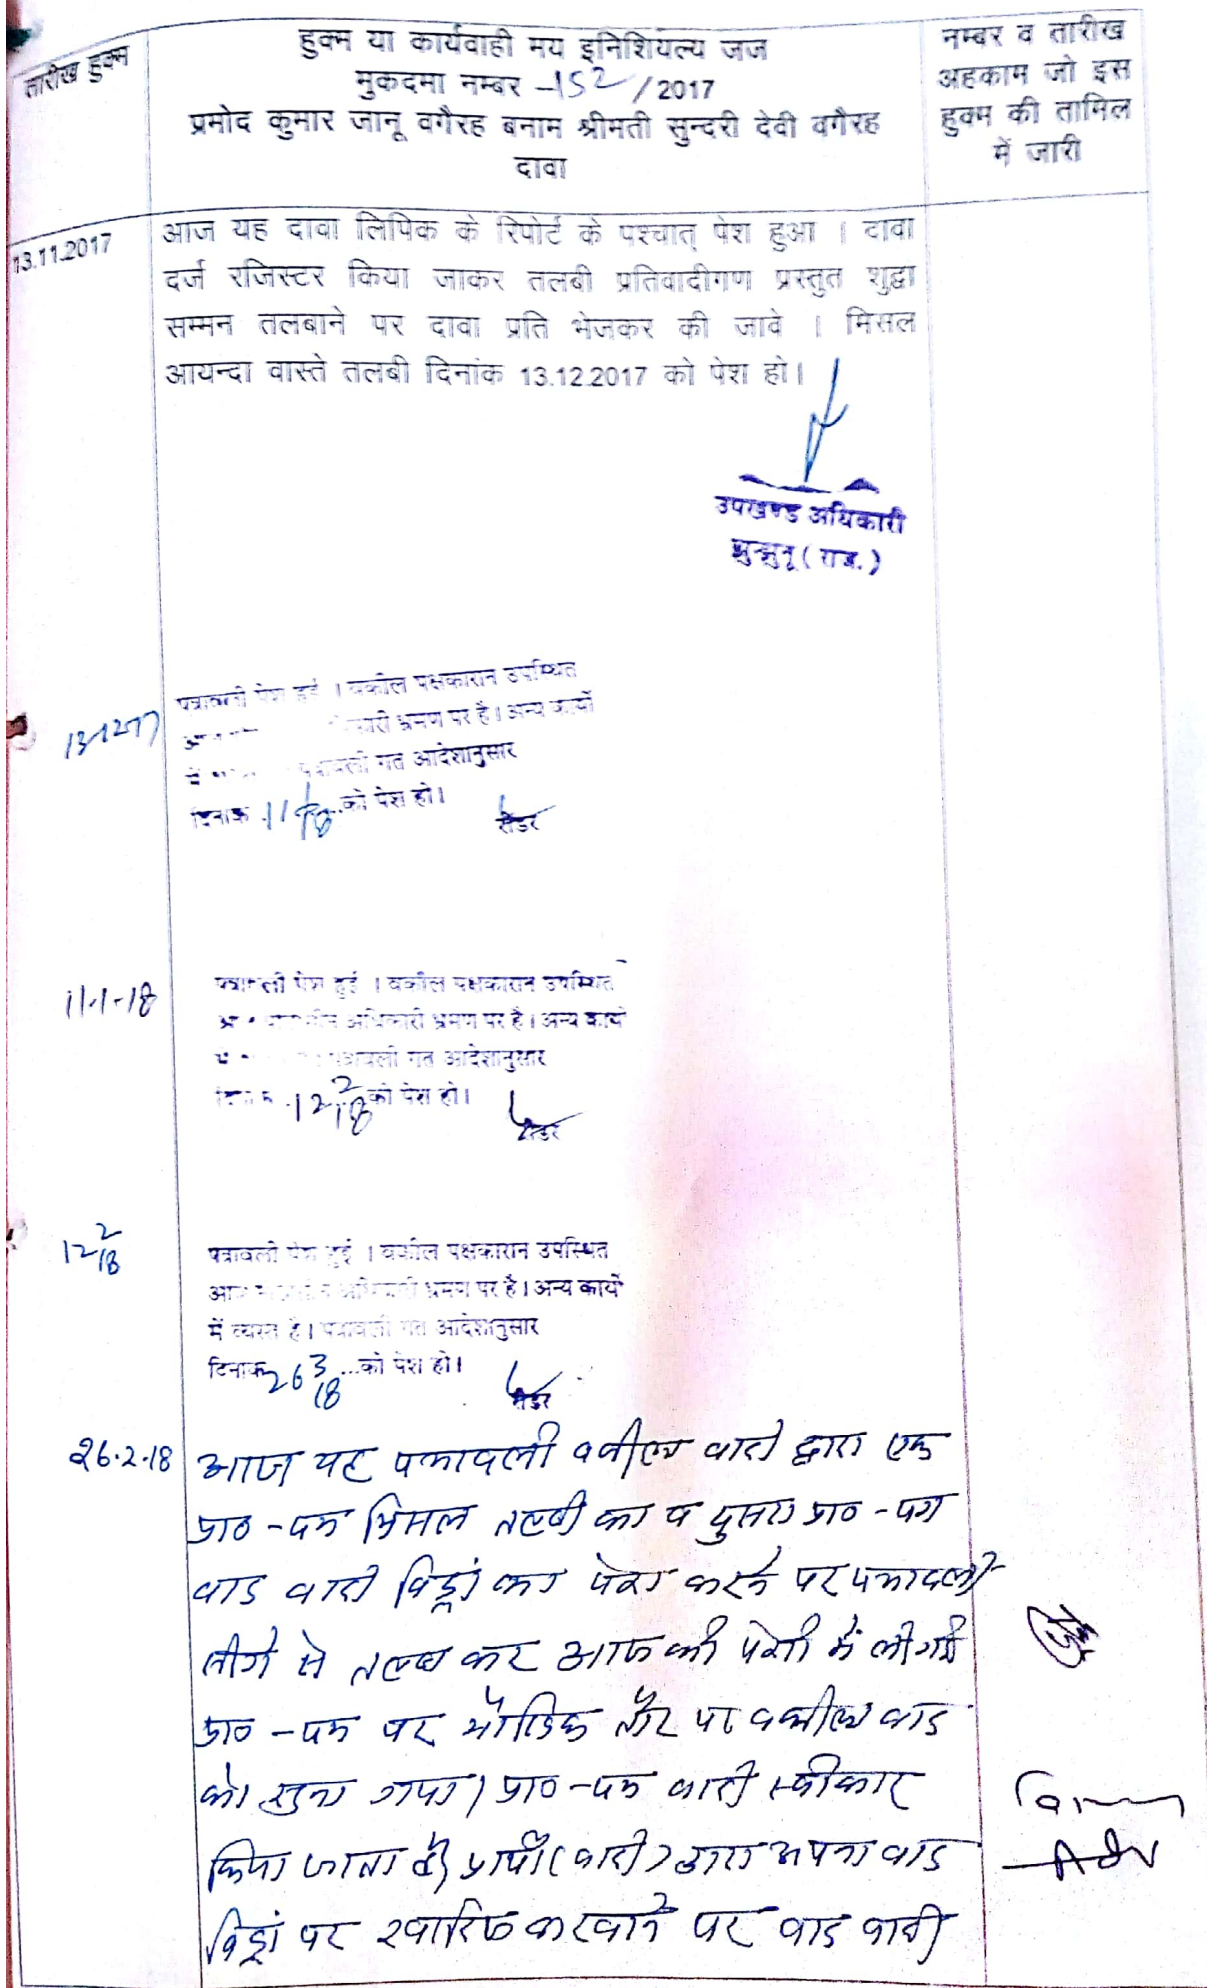 तारीख हुक्म
हुक्म या कार्यवाही मय इनिशियल्य जज
मुकदमा नम्बर -152/2017
प्रमोद कुमार जानू वगैरह बनाम श्रीमती सुन्दरी देवी वगैरह
दावा
नम्बर व तारीख
अहकाम जो इस
हुक्म की तामिल
में जारी
13.11.2017
आज यह दावा लिपिक के रिपोर्ट के पश्चात् पेश हुआ । दावा
दर्ज रजिस्टर किया जाकर तलबी प्रतिवादीगण प्रस्तुत शुद्वा
सम्मन तलबाने पर दावा प्रति भेजकर की जावे । मिसल
आयन्दा वास्ते तलबी दिनांक 13.12.2017 को पेश हो।
उपखण्ड अधिकारी
झुन्झुनू (राज.)
13-12-17
पत्रावली पेश हुई । वकील पक्षकारान उपस्थित
भ्रमण पर है। अन्य कार्यों
पत्रावली गत आदेशानुसार
दिनांक 11/1/18 को पेश हो।
रीडर
11-1-18
पत्रावली पेश हुई । वकील पक्षकारान उपस्थित
अधिकारी भ्रमण पर है। अन्य कार्यो
पत्रावली गत आदेशानुसार
12/2/18 को पेश हो।
रीडर
12/2/18
पत्रावली पेश हुई । वकील पक्षकारान उपस्थित
आज अधिकारी भ्रमण पर है। अन्य कार्यों
में व्यस्त है। पत्रावली गत आदेशानुसार
दिनांक 26/3/18 ...को पेश हो।
रीडर
26.2.18
आज यह पत्रावली वकील वादी द्वारा एक
प्रा0-पत्र मिसल तलबी का व दुसरा प्रा0-पत्र
वाद वादी विड्रॉ का पेश करने पर पत्रावली
लीगे से तलब कर आज की पेशी में ली गयी
प्रा0-पत्र पर मौखिक तौर पर वकील वाद
को सुना गया। प्रा0-पत्र वादी स्वीकार
किया जाता है। प्रार्थी (वादी) द्वारा अपना वाद
विड्रॉ पर खारिज करवाने पर वाद वादी
Adv